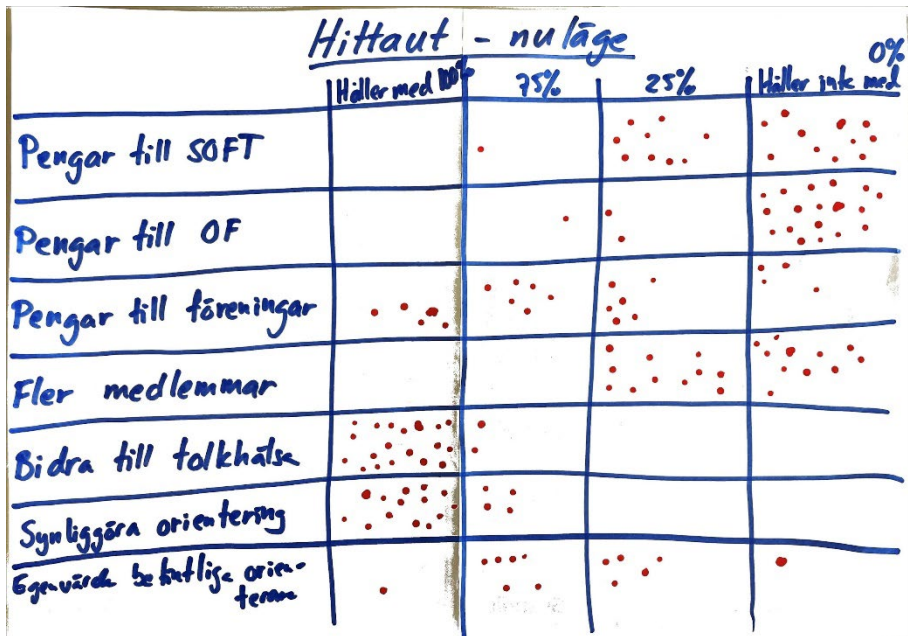 Hittaut - nuläge
0%
Håller med 100%
75%
25%
Håller inte med
Pengar till SOFT
Pengar till OF
Pengar till föreningar
Fler medlemmar
Bidra till folkhälsa
Synliggöra orientering
Egenvärde befintliga orien-
terare